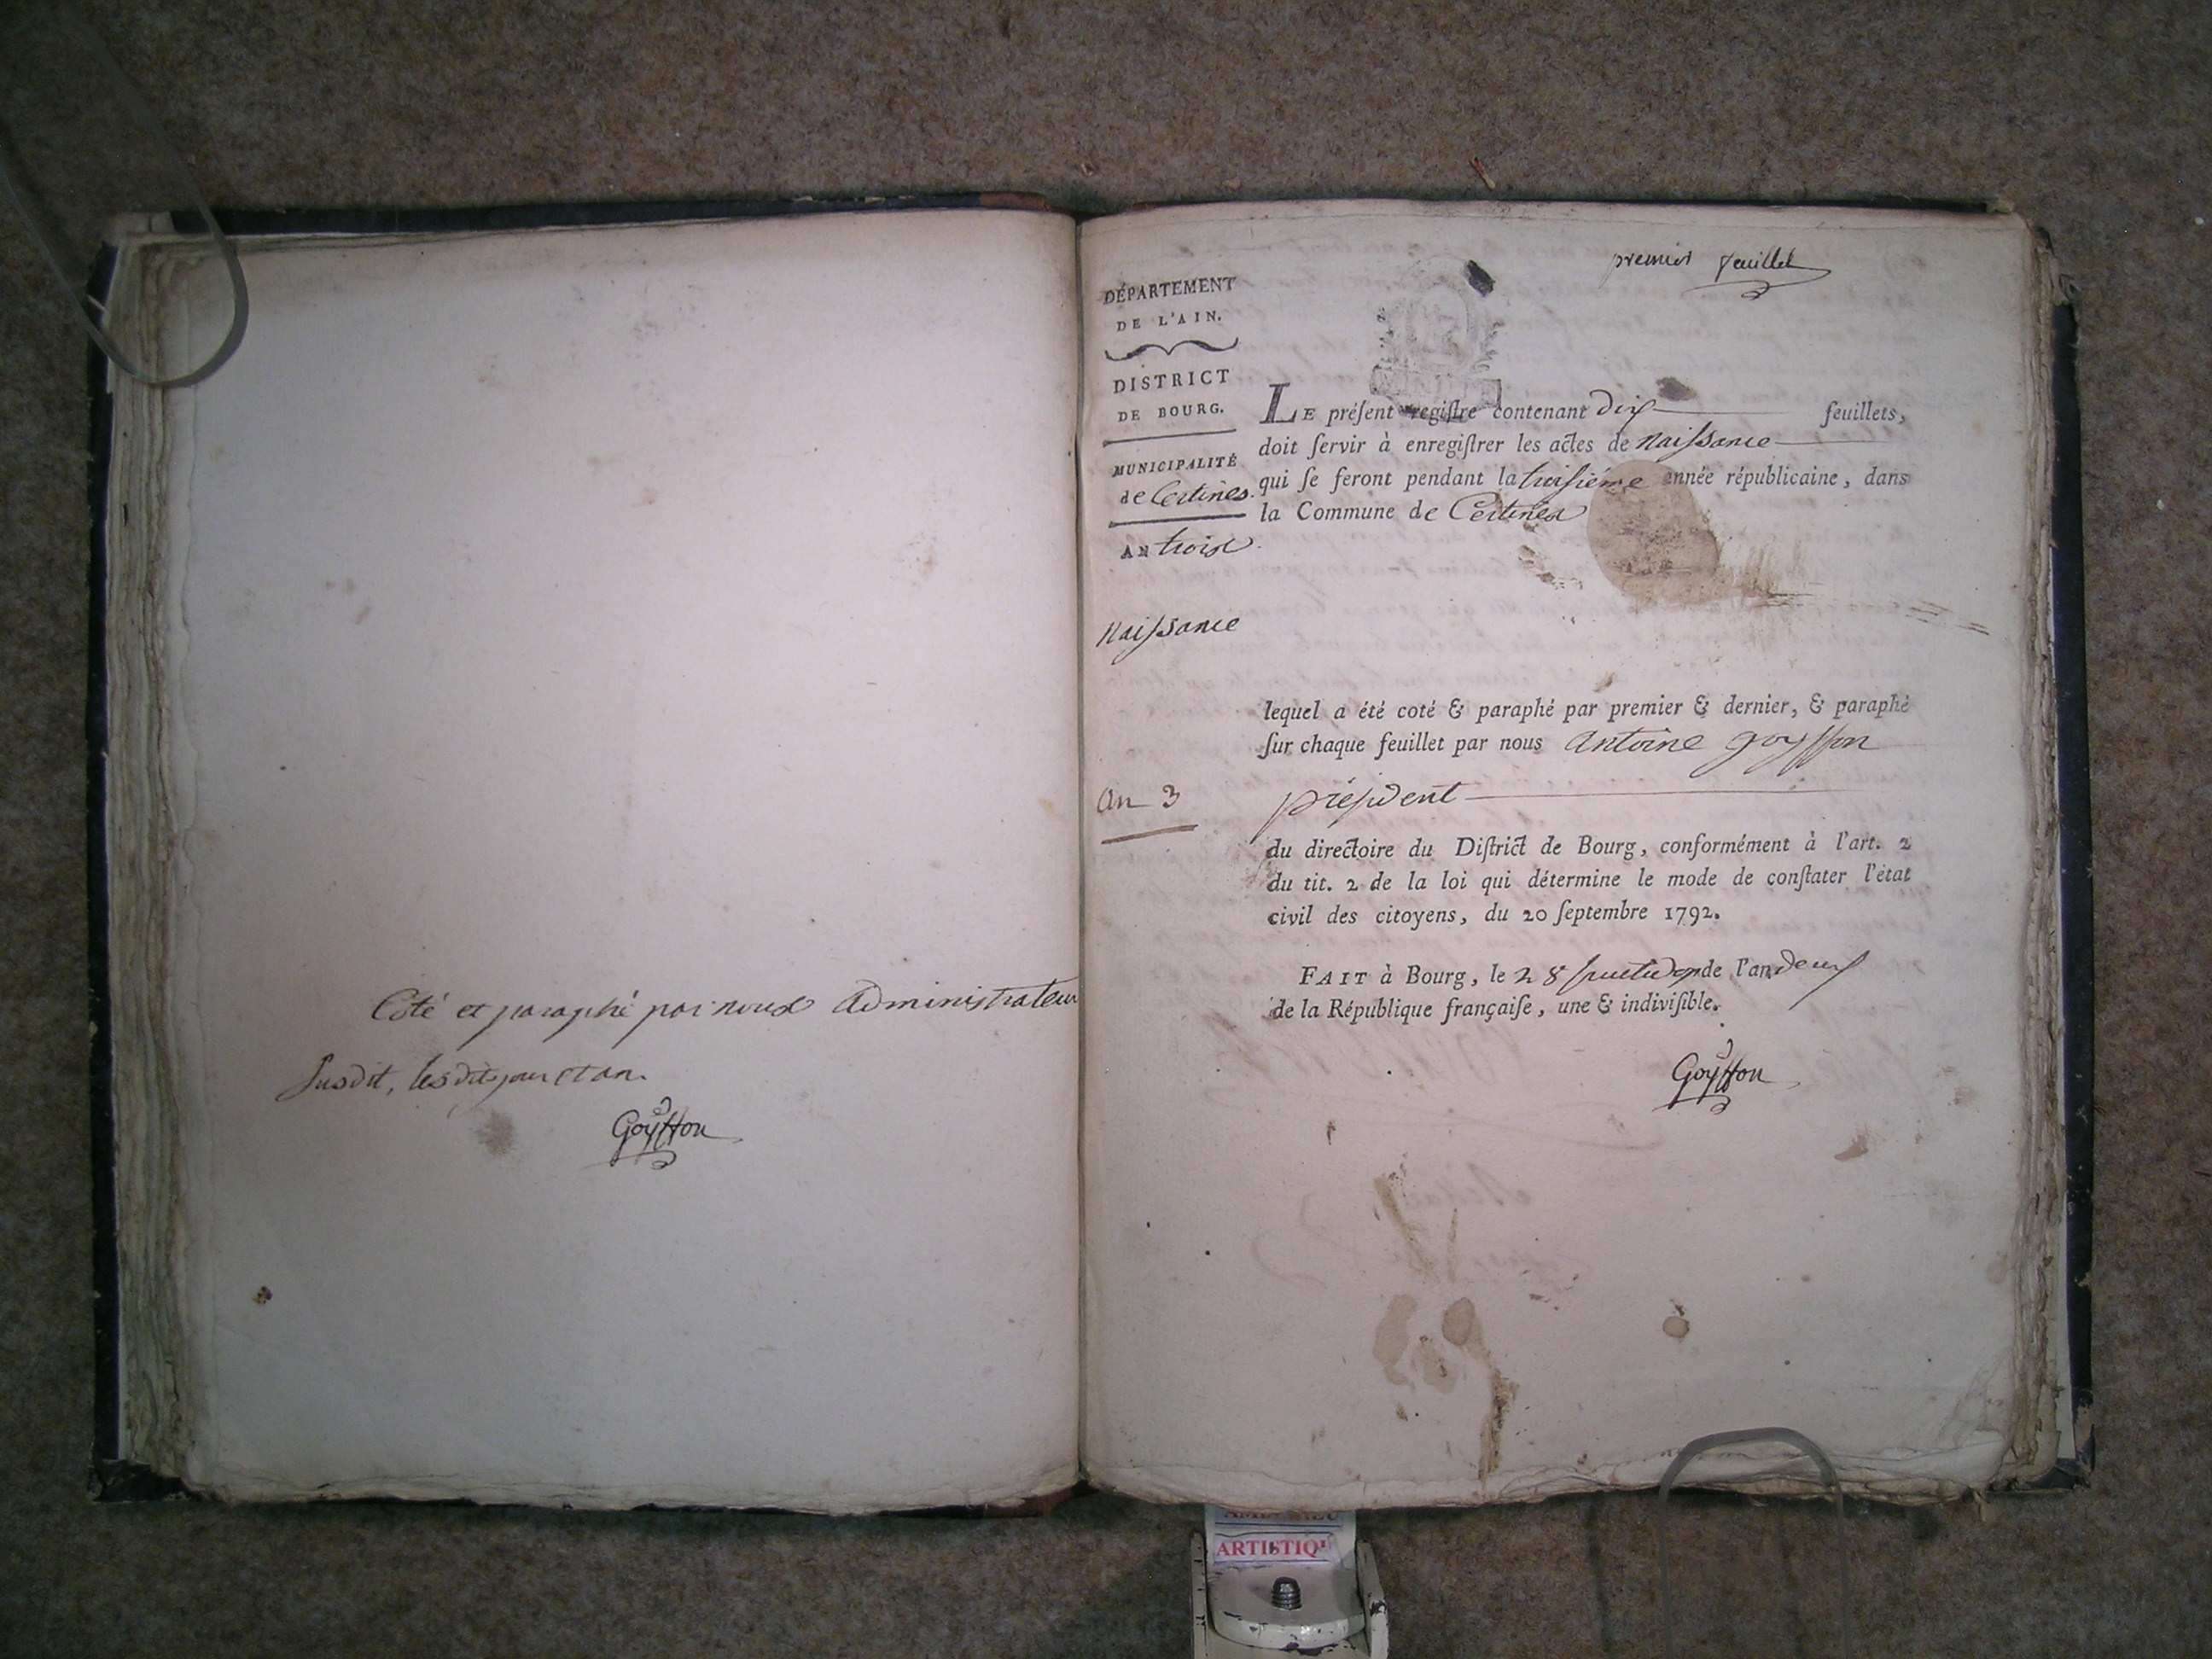 Coté et paraphé par nous administrateur
susdit, lesdits jour et an.
Goyffon
premier feuillet
DÉPARTEMENT
DE L'AIN.
DISTRICT
DE BOURG.
MUNICIPALITÉ
de Certines.
AN trois
Naissance
An 3
LE préſent regiſtre contenant dix feuillets,
doit ſervir à enregiſtrer les actes de naissance
qui ſe feront pendant la troisiéme année républicaine, dans
la Commune de Certines
lequel a été coté & paraphé par premier & dernier, & paraphé
ſur chaque feuillet par nous antoine goyffon
président
du directoire du Diſtrict de Bourg, conformément à l'art. 2
du tit. 2 de la loi qui détermine le mode de conſtater l'état
civil des citoyens, du 20 ſeptembre 1792.
FAIT à Bourg, le 28 fructidor de l'an deux
de la République françaiſe, une & indiviſible.
Goyffon
ARTISTIQU